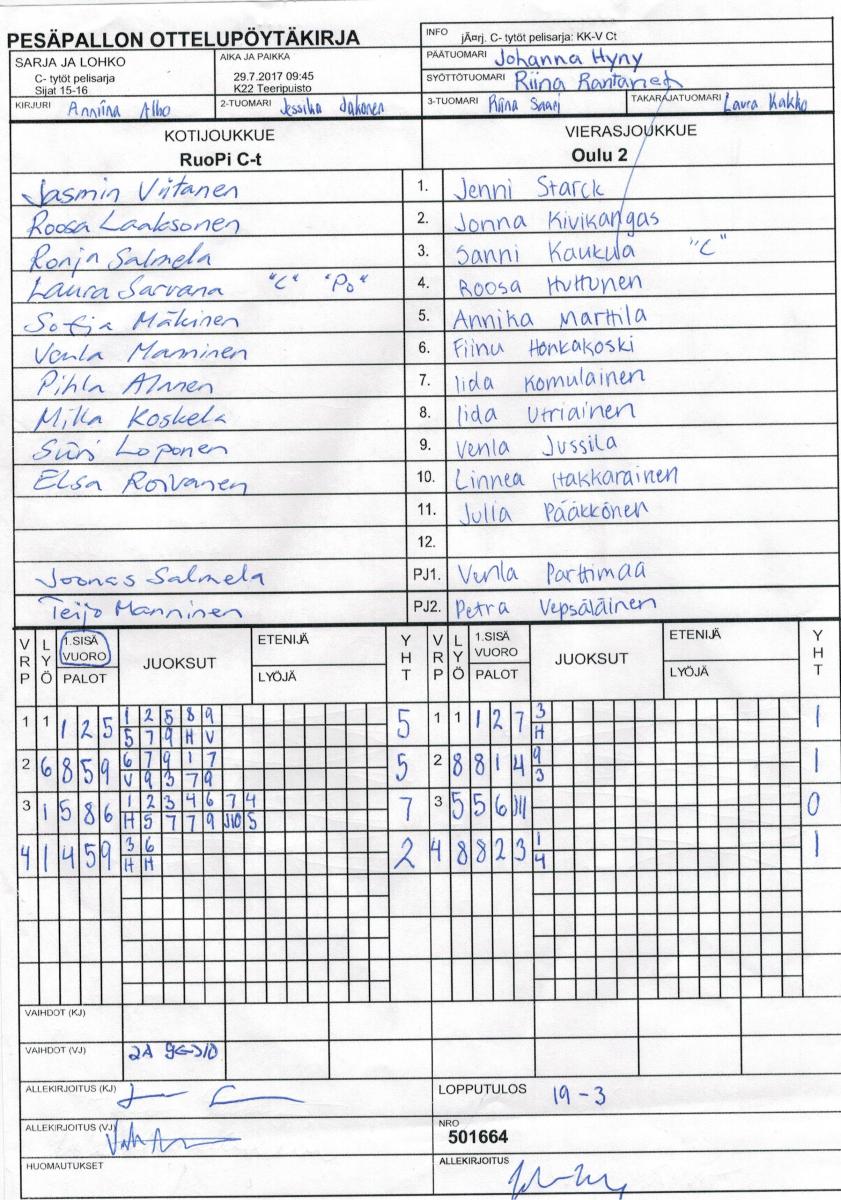 PESÄPALLON OTTELUPÖYTÄKIRJA
INFO järj. C- tytöt pelisarja: KK-V Ct
SARJA JA LOHKO
C- tytöt pelisarja
Sijat 15-16
AIKA JA PAIKKA
29.7.2017 09:45
K22 Teeripuisto
PÄÄTUOMARI Johanna Hyny
SYÖTTÖTUOMARI Riina Rantanen
KIRJURI Anniina Alho
2-TUOMARI Jessika Jakonen
3-TUOMARI Riina Saari
TAKARAJATUOMARI Laura Kakko
KOTIJOUKKUE
RuoPi C-t
VIERASJOUKKUE
Oulu 2
Jasmin Viitanen 1. Jenni Starck
Roosa Laaksonen 2. Jonna Kivikangas
Ronja Salmela 3. Sanni Kaukula "C"
Laura Sarvana "C" "Po" 4. Roosa Huttunen
Sofja Mäkinen 5. Annika Marttila
Venla Manninen 6. Fiinu Honkakoski
Pihla Alanen 7. Iida Komulainen
Milla Koskela 8. Iida Utriainen
Siiri Loponen 9. Venla Jussila
Elsa Roivanen 10. Linnea Hakkarainen
11. Julia Pääkkönen
12.
Joonas Salmela PJ1. Venla Parttimaa
Teijo Manninen PJ2. Petra Vepsäläinen
VRP LYÖ 1.SISÄ VUORO PALOT JUOKSUT ETENIJÄ LYÖJÄ YHT VRP LYÖ 1.SISÄ VUORO PALOT JUOKSUT ETENIJÄ LYÖJÄ YHT
1 1 1 2 5 1 2 5 8 9 5 1 1 1 2 7 3 1
5 7 9 H V H
2 6 8 5 9 6 7 9 1 7 5 2 8 8 1 4 9 1
V 9 3 7 9 3
3 1 5 8 6 1 2 3 4 6 7 4 7 3 5 5 6 J11 0
H 5 7 7 9 J10 5
4 1 4 5 9 3 6 2 4 8 8 2 3 1 1
H H 4
VAIHDOT (KJ)
VAIHDOT (VJ) 2A 9<->10
ALLEKIRJOITUS (KJ)
LOPPUTULOS 19 - 3
ALLEKIRJOITUS (VJ)
NRO
501664
HUOMAUTUKSET
ALLEKIRJOITUS